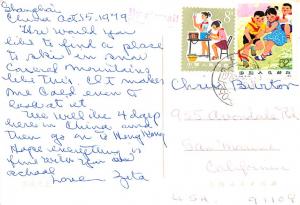 Shanghai
China Oct. 15, 1979
How would you
like to find a place
to ski in snow
covered mountains
like this? It makes
me cold even to
look at it.
We will be 4 days
here in China and
then go on to Hong Kong
Hope everything is
fine over
school
Love Zeta
8
中国人民邮政
Chris Burton
935 Avondale Rd
San Marino
California
U.S.A. 91108